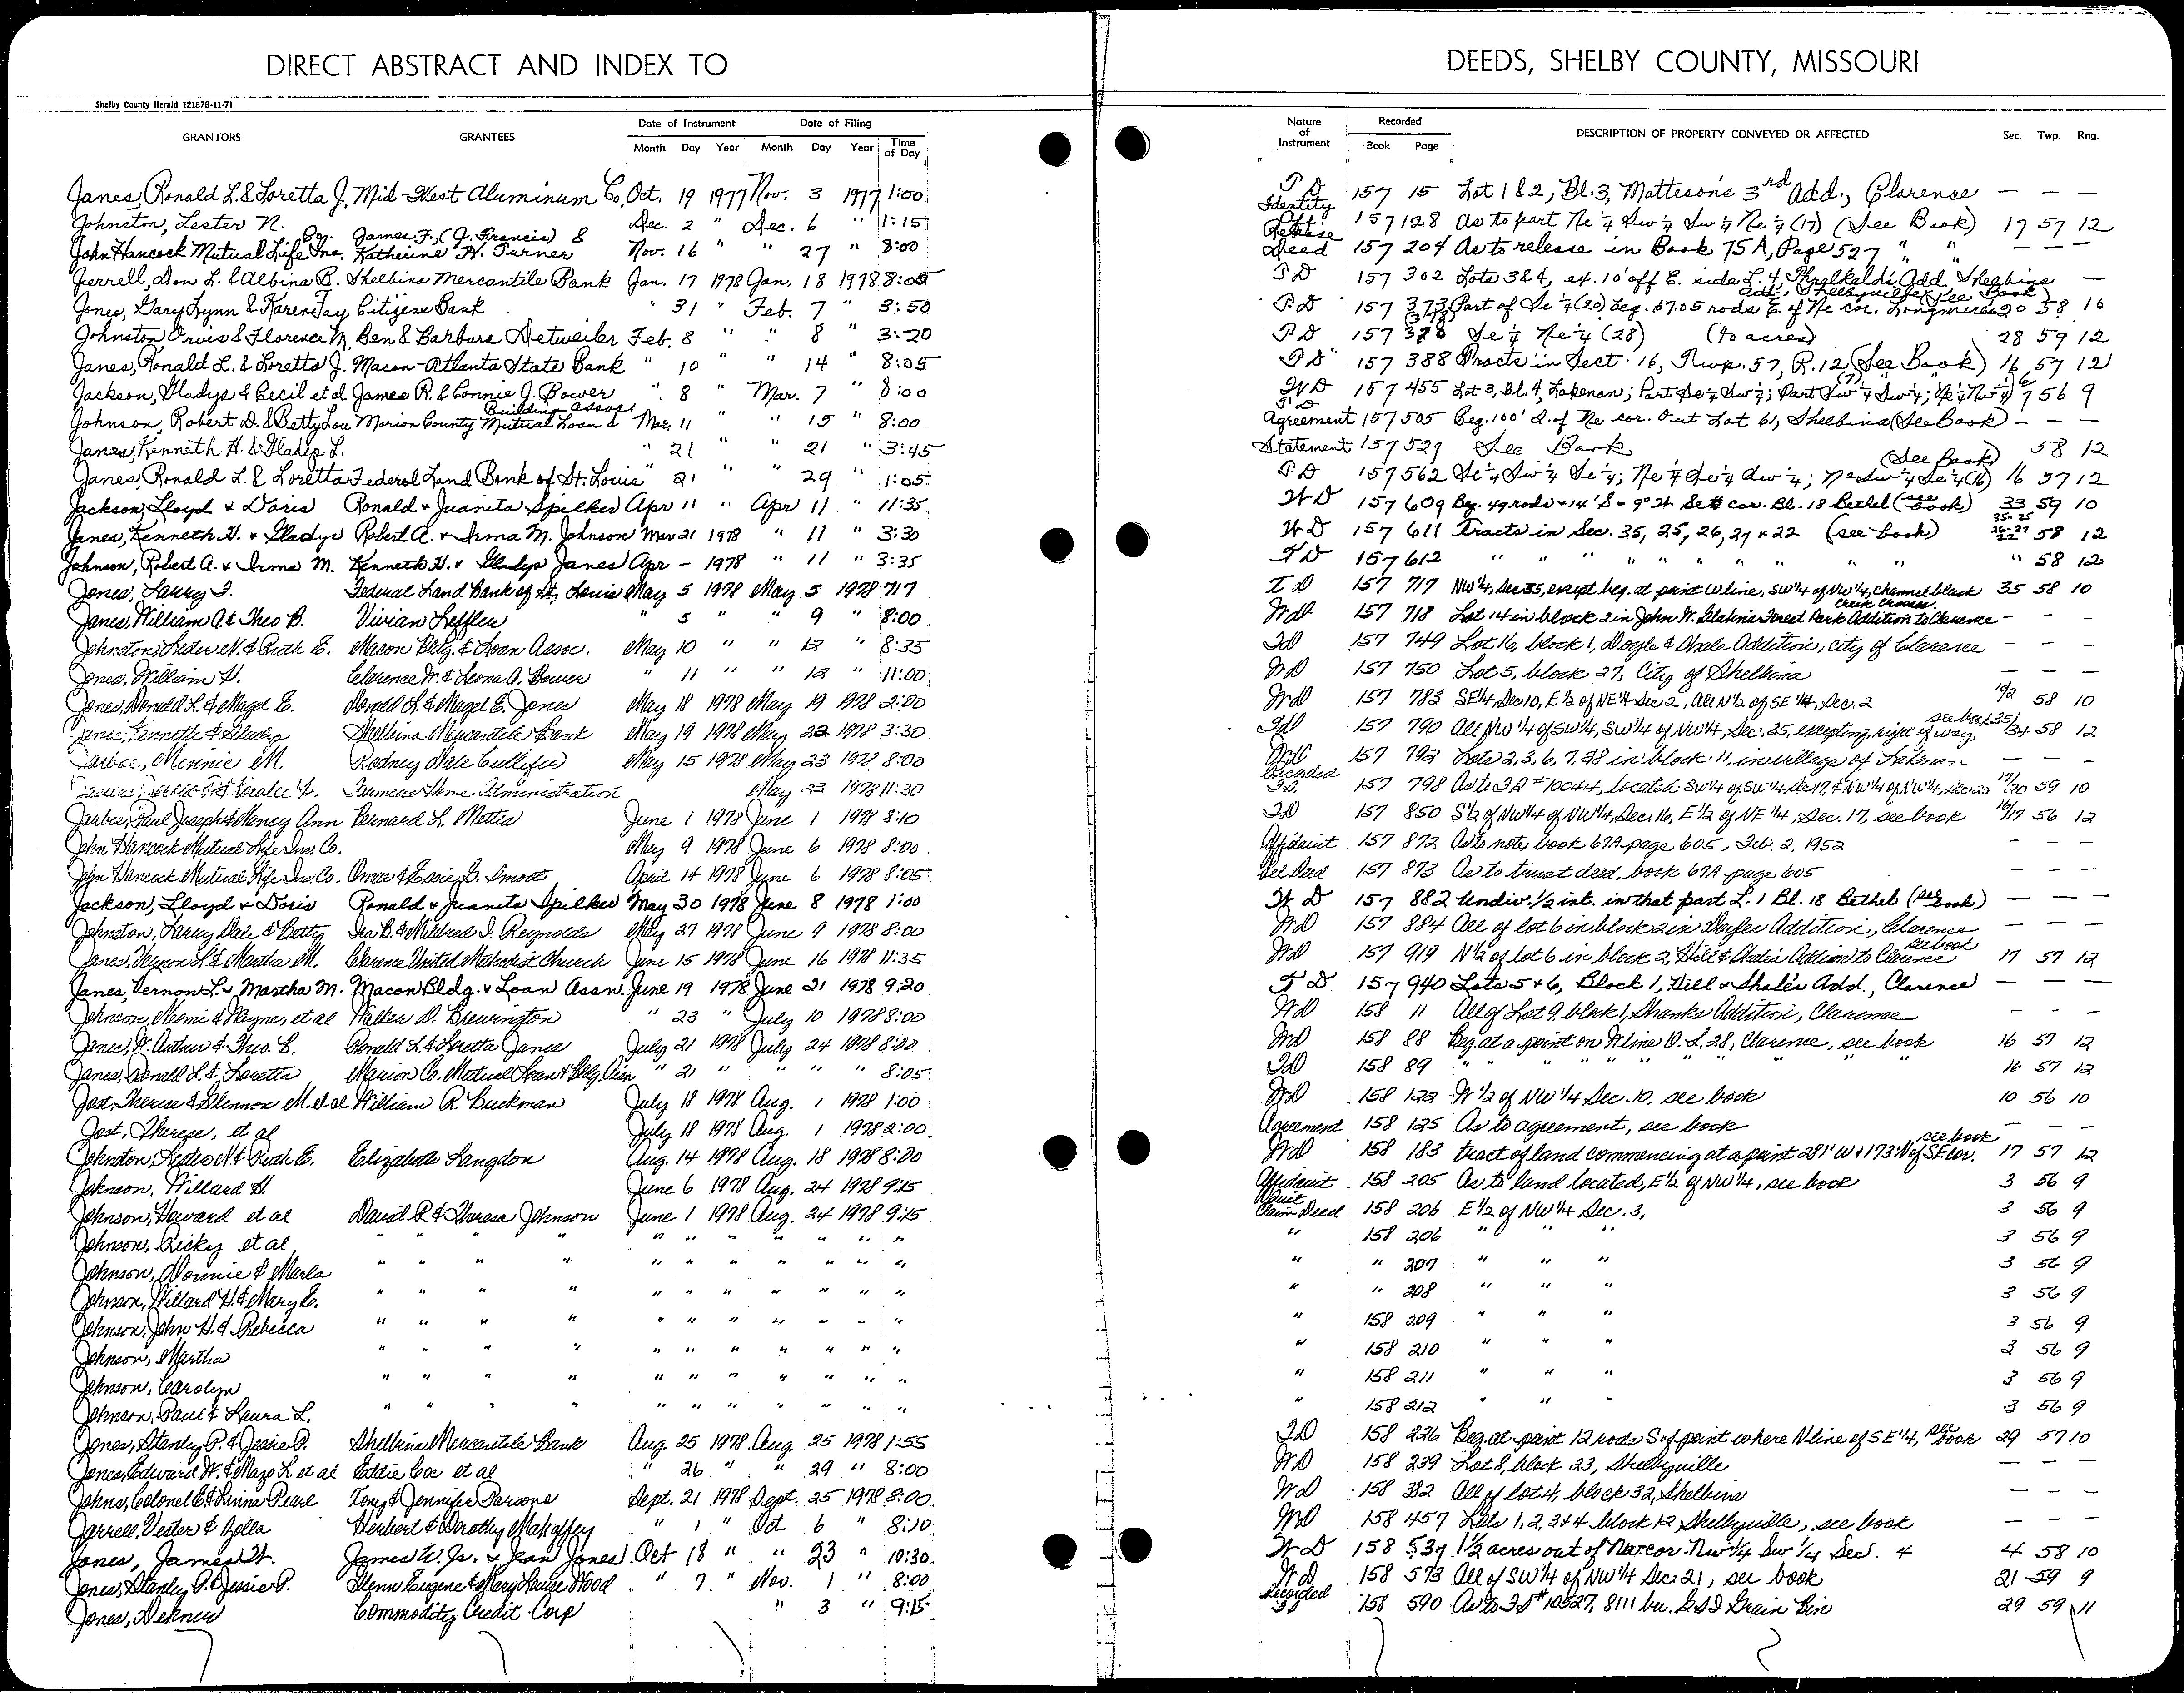 DIRECT ABSTRACT AND INDEX TO
DEEDS, SHELBY COUNTY, MISSOURI
Shelby County Herald 12187B-11-71
GRANTORS GRANTEES Date of Instrument Date of Filing Time of Day
Month Day Year Month Day Year
Nature of Instrument Recorded DESCRIPTION OF PROPERTY CONVEYED OR AFFECTED Sec. Twp. Rng.
Book Page
Janes, Ronald L. & Loretta J. Mid-West Aluminum Co. Oct. 19 1977 Nov. 3 1977 1:00 T D 157 15 Lot 1 & 2, Bl. 3, Matteson's 3rd Add., Clarence — —
Johnston, Lester N. Dec. 2 " Dec. 6 " 1:15 Identity 157 128 As to part Ne ¼ Sw ¼ Sw ¼ Ne ¼ (17) (See Book) 17 57 12
John Hancock Mutual Life Ins. Co. James F. (J. Francis) & Katherine H. Turner Nov. 16 " " 27 " 8:00 Release Deed 157 204 As to release in Book 75A, Page 527 " " — — —
Jerrell, Don L. & Albina B. Shelbina Mercantile Bank Jan. 17 1978 Jan. 18 1978 8:05 T D 157 302 Lots 3 & 4, ex. 10' off E. side L. 4, Threlkeld's Add. Shelbina —
Jones, Gary Lynn & Karen Fay Citizens Bank " 31 " Feb. 7 " 3:50 T D 157 373 Part of Se ¼ (20) Beg. 67.05 rods E. of Ne cor. Longmire's Add., Shelbyville (See Book) 20 58 10
Johnston, Orvis & Florence M. Ben & Barbara Detweiler Feb. 8 " " 8 " 3:20 T D 157 378 Se ¼ Ne ¼ (28) (40 acres) 28 59 12
Janes, Ronald L. & Loretta J. Macon-Atlanta State Bank " 10 " " 14 " 8:05 T D 157 388 Tracts in Sect. 16, Twp. 57, R. 12 (See Book) 16 57 12
Jackson, Gladys & Cecil et al James R. & Connie J. Bower " 8 " Mar. 7 " 8:00 W D 157 455 Lot 3, Bl. 4, Lakenan; 7 56 9
Johnson, Robert D. & Betty Lou Marion County Mutual Loan & Building Assoc. Mar. 11 " " 15 " 8:00 T D Agreement 157 505 Beg. 100' S. of Ne cor. Out Lot 61, Shelbina (See Book) — — —
Janes, Kenneth H. & Gladys L. " 21 " " 21 " 3:45 Statement 157 529 See Book 58 12
Janes, Ronald L. & Loretta Federal Land Bank of St. Louis " 21 " " 29 " 1:05 T D 157 562 Se ¼ Sw ¼ Se ¼; Ne ¼ Se ¼ Sw ¼; (See Book) 16 57 12
Jackson, Lloyd & Doris Ronald & Juanita Spilker Apr 11 " Apr 11 " 11:35 W D 157 609 Beg. 49 rods + 14' S + 9° W Se cor. Bl. 18 Bethel (see book) 33 59 10
Janes, Kenneth H. & Gladys Robert A. & Irma M. Johnson Mar 21 1978 " 11 " 3:30 W D 157 611 Tracts in Sec. 35, 25, 26, 27 & 22 (see book) 35-25 26-27 22 58 12
Johnson, Robert A. & Irma M. Kenneth H. & Gladys Janes Apr — 1978 " 11 " 3:35 T D 157 612 " " " " " " " " " 58 12
Jones, Larry J. Federal Land Bank of St. Louis May 5 1978 May 5 1978 717 T D 157 717 NW ¼, Sec 35, except beg. at point W line, SW ¼ of NW ¼, channel black creek crosses 35 58 10
Janes, William A. & Theo B. Vivian Leffler " 5 " " 9 " 8:00 WD 157 718 Lot 14 in block 2 in John W. Glahn's Forest Park Addition to Clarence — — —
Johnston, Lester N. & Ruth E. Macon Bldg. & Loan Assoc. May 10 " " 12 " 8:35 TD 157 749 Lot 16, block 1, Doyle & Shale Addition, city of Clarence — — —
Jones, William H. Clarence W. & Leona A. Bower " 11 " " 12 " 11:00 WD 157 750 Lot 5, block 27, City of Shelbina — — —
Jones, Donald L. & Magel E. Donald L. & Magel E. Jones May 18 1978 May 19 1978 2:00 WD 157 783 SE ¼, Sec 10, E ½ of NE ¼ Sec 2, All N ½ of SE ¼, Sec. 2 10/2 58 10
Janes, Kenneth & Gladys Shelbina Mercantile Bank May 19 1978 May 22 1978 3:30 TD 157 790 All NW ¼ of SW ¼, SW ¼ of NW ¼, Sec. 35, excepting right of way, see book 35/34 58 12
Jarboe, Minnie M. Rodney Dale Gullifer May 15 1978 May 23 1978 8:00 WD 157 792 Lots 2, 3, 6, 7, & 8 in block 11, in village of Lakenan — — —
Farmers Home Administration May 23 1978 11:30 Recorded 157 798 As to #10044, located: SW ¼ of SW ¼ Sec 17, & NW ¼ of NW ¼, Sec. 20 17/20 59 10
Jarboe, Paul Joseph & Nancy Ann Bernard L. Mettes June 1 1978 June 1 1978 8:10 TD 157 850 S ½ of NW ¼ of NW ¼, Sec. 16, E ½ of NE ¼, Sec. 17, see book 16/17 56 12
John Hancock Mutual Life Ins. Co. May 9 1978 June 6 1978 8:00 Affidavit 157 872 As to note, book 67A page 605, Feb. 2, 1952 — — —
John Hancock Mutual Life Ins. Co. Omer & Essie G. Smoot April 14 1978 June 6 1978 8:05 Rel Deed 157 873 As to trust deed, book 67A page 605 — — —
Jackson, Lloyd & Doris Ronald & Juanita Spilker May 30 1978 June 8 1978 1:00 W D 157 882 Undiv. ½ int. in that part L. 1 Bl. 18 Bethel (see book) — — —
Johnston, Larry Dale & Betty Ira B. & Mildred I. Reynolds May 27 1978 June 9 1978 8:00 WD 157 884 All of lot 6 in block 2 in Doyles Addition, Clarence — — —
Janes, Vernon L. & Martha M. Clarence United Methodist Church June 15 1978 June 16 1978 11:35 WD 157 919 N ½ of lot 6 in block 2, Hill & Shale's Addition to Clarence see book 17 57 12
Janes, Vernon L. & Martha M. Macon Bldg. & Loan Assn. June 19 1978 June 21 1978 9:20 T D 157 940 Lots 5 + 6, Block 1, Hill & Shale's Add., Clarence — — —
Johnson, Naomi & Wayne, et al Walker D. Brewington " 23 " July 10 1978 8:00 WD 158 11 All of Lot 9, block 1, Shanks Addition, Clarence — — —
Janes, W. Arthur & Theo. B. Ronald L. & Loretta Janes July 21 1978 July 24 1978 8:00 WD 158 88 Beg. at a point on W line O.L. 28, Clarence, see book 16 57 12
Janes, Ronald L. & Loretta Marion Co. Mutual Loan & Bldg. Assn " 21 " " " " 8:05 TD 158 89 " " " " " " " 16 57 12
Jost, Therese & Glennon M. et al William R. Buckman July 18 1978 Aug. 1 1978 1:00 WD 158 122 W ½ of NW ¼ Sec. 10, see book 10 56 10
Jost, Therese, et al July 18 1978 Aug. 1 1978 2:00 Agreement 158 125 As to agreement, see book — — —
Johnston, Lester N. & Ruth E. Elizabeth Langdon Aug. 14 1978 Aug. 18 1978 8:00 WD 158 183 tract of land commencing at a point 281' W + 173' N of SE cor. see book 17 57 12
Johnson, Willard H. June 6 1978 Aug. 24 1978 9:15 Affidavit 158 205 As to land located, E ½ of NW ¼, see book 3 56 9
Johnson, Howard et al David R. & Theresa Johnson June 1 1978 Aug. 24 1978 9:15 Quit Claim Deed 158 206 E ½ of NW ¼ Sec. 3, 3 56 9
Johnson, Ricky et al " " " " " " " " " " " " 158 206 " " " 3 56 9
Johnson, Donnie & Marla " " " " " " " " " " " " " 207 " " " 3 56 9
Johnson, Willard H. & Mary E. " " " " " " " " " " " " " 208 " " " 3 56 9
Johnson, John H. & Rebecca " " " " " " " " " " " " 158 209 " " " 3 56 9
Johnson, Martha " " " " " " " " " " " " 158 210 " " " 3 56 9
Johnson, Carolyn " " " " " " " " " " " " 158 211 " " " 3 56 9
Johnson, Paul & Laura L. " " " " " " " " " " " " 158 212 " " " 3 56 9
Jones, Stanley P. & Jessie P. Shelbina Mercantile Bank Aug. 25 1978 Aug 25 1978 1:55 TD 158 226 Beg. at point 12 rods S of point where N line of SE ¼, see book 29 57 10
Jones, Edward W. & Mazo L. et al Eddie Coe et al " 26 " " 29 " 8:00 WD 158 239 Lot 8, block 23, Shelbyville — — —
Johns, Colonel E. & Linna Pearl Tony & Jennifer Parsons Sept. 21 1978 Sept. 25 1978 8:00 WD 158 332 All of lot 4, block 32, Shelbina — — —
Jarrell, Vester & Zella Herbert & Dorothy Mahaffey " 1 " Oct 6 " 8:10 WD 158 457 Lots 1, 2, 3 & 4 block 12, Shelbyville, see book — — —
Jones, James W. James W. Jr. & Jean Jones Oct 18 " " 23 " 10:30 W D 158 537 1½ acres out of Nw cor. Nw ¼ Sw ¼ Sec. 4 4 58 10
Jones, Stanley P. & Jessie P. Glenn Eugene & Mary Louise Wood " 7 " Nov. 1 " 8:00 WD 158 573 All of SW ¼ of NW ¼ Sec. 21, see book 21 59 9
Jones, Commodity Credit Corp " 3 " 9:15 Recorded 158 590 As to #10527, 8111 bu. Grain Bin 29 59 11